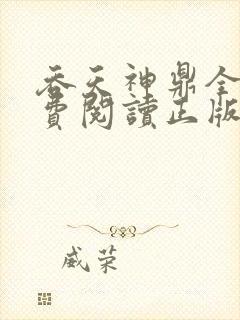 吞天神鼎全
費閱讀正版
威荣